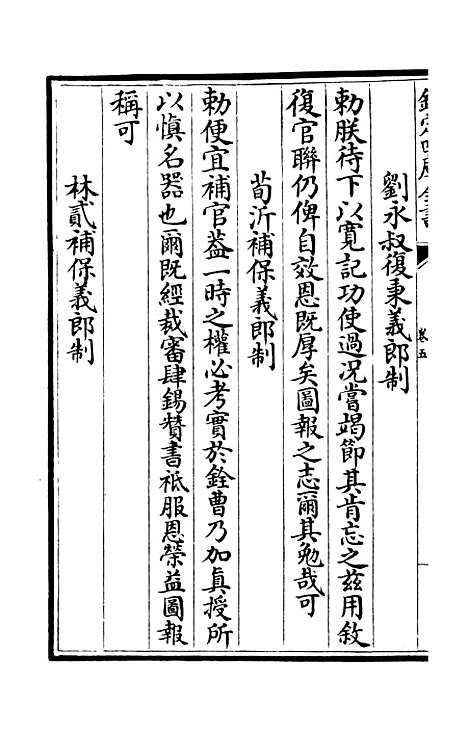 欽定四庫全書
卷五
劉永叔復秉義郎制
勅朕待下以寛記功使過况嘗竭節其肯忘之兹用敘
復官聯仍俾自效恩既厚矣圖報之志爾其勉哉可
荀沂補保義郎制
勅便宜補官葢一時之權必考實於銓曹乃加真授所
以慎名器也爾既經裁審肆錫贊書祗服恩榮益圖報
稱可
林貳補保義郎制